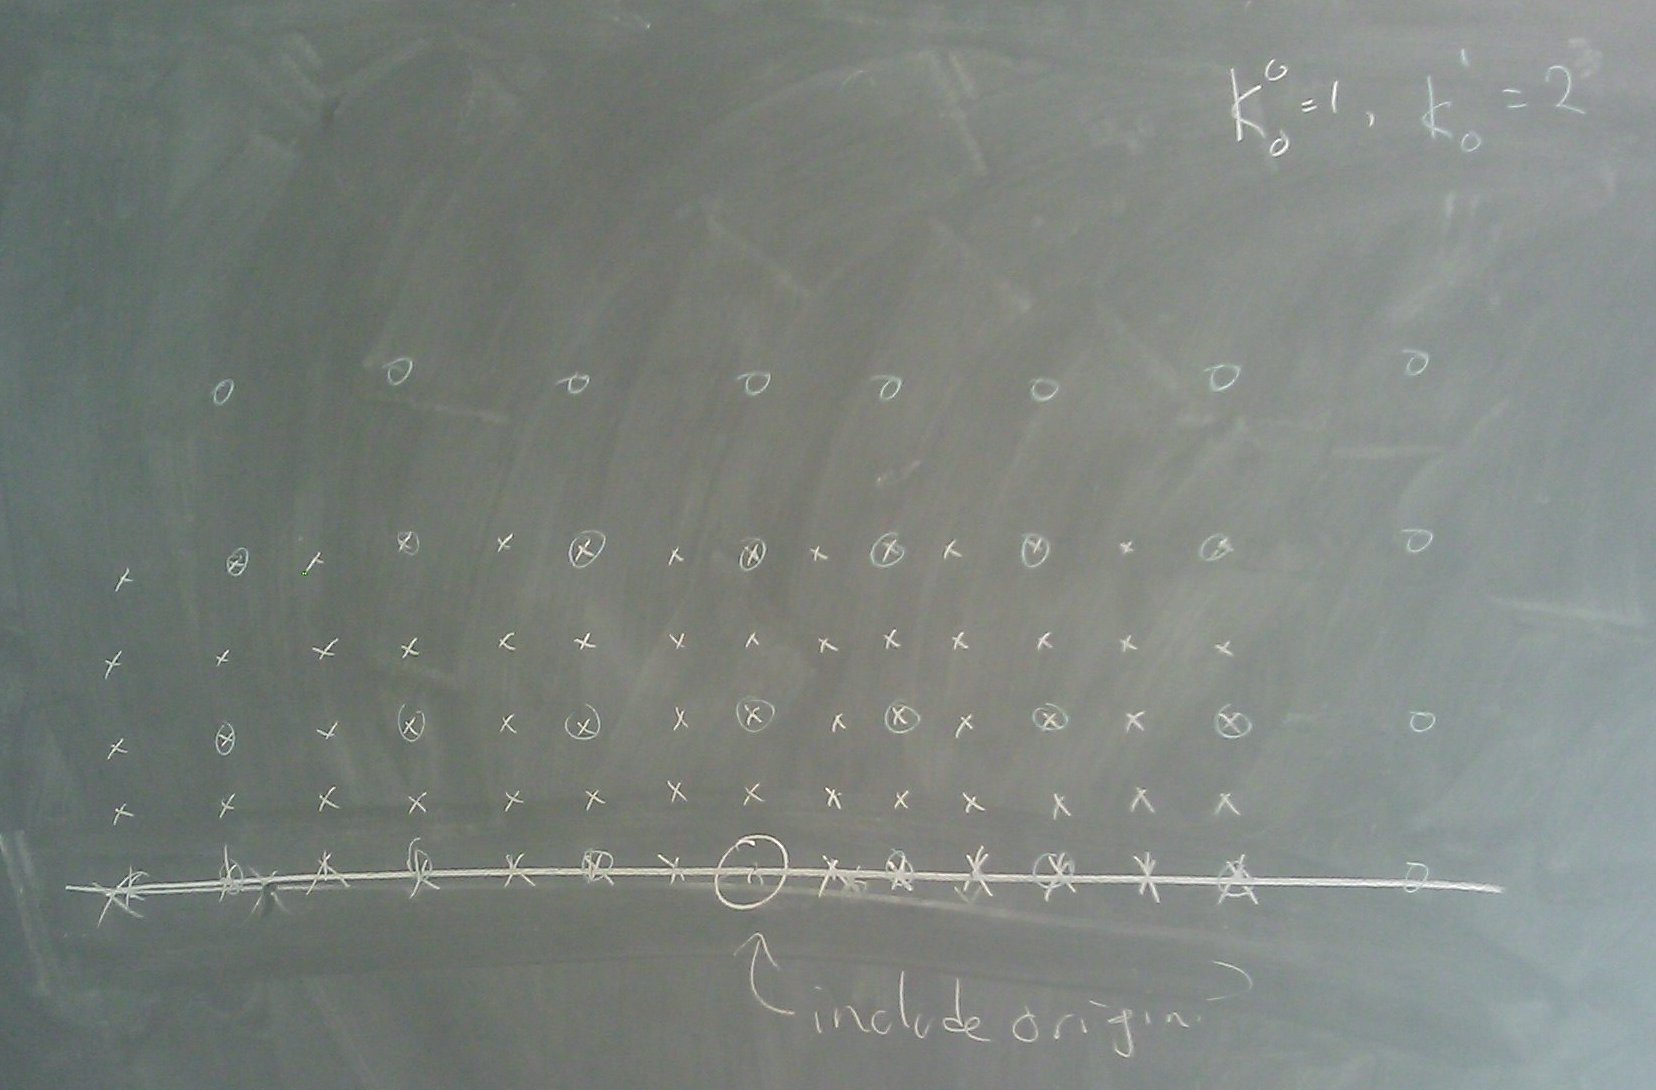 K₀⁰ = 1, k₀¹ = 2
include origin?